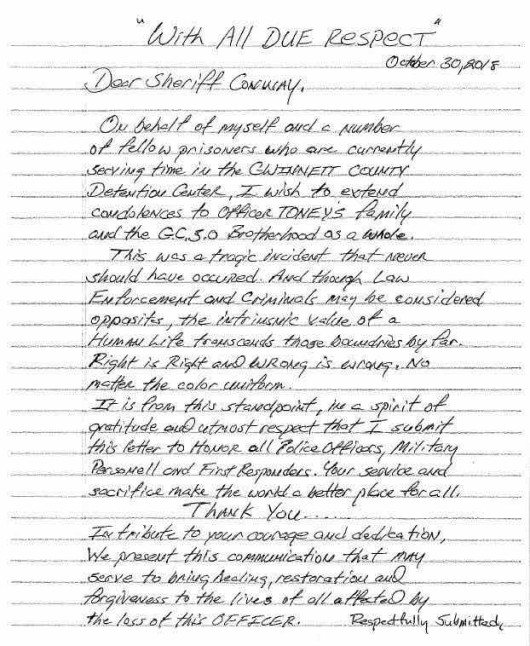 "With All DUE RESPECT"
October 30, 2018
Dear Sheriff CONWAY.
On behalf of myself and a number
of fellow prisoners who are currently
serving time in the GWINNETT COUNTY
Detention Center, I wish to extend
condolences to Officer TONEY'S family
and the G.C.S.O Brotherhood as a whole.
This was a tragic incident that never
should have occured. And though Law
Enforcement and Criminals may be considered
opposites, the intrinsic value of a
Human Life transcends those boundries by far.
Right is Right and WRONG is wrong. No
matter the color uniform.
It is from this standpoint, in a spirit of
gratitude and utmost respect that I submit
this letter to Honor all Police Officers, Military
Personell and First Responders. Your service and
sacrifice make the world a better place for all.
THANK YOU.....
In tribute to your courage and dedication,
We present this communication that may
serve to bring healing, restoration and
forgiveness to the lives of all affected by
the loss of this OFFICER. Respectfully Submitted,